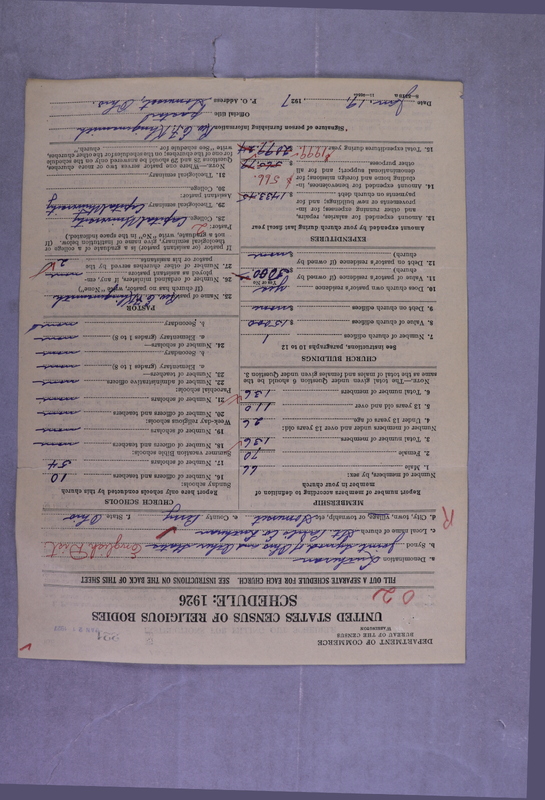 DEPARTMENT OF COMMERCE
BUREAU OF THE CENSUS
WASHINGTON
UNITED STATES CENSUS OF RELIGIOUS BODIES
SCHEDULE: 1926
FILL OUT A SEPARATE SCHEDULE FOR EACH CHURCH. SEE INSTRUCTIONS ON THE BACK OF THIS SHEET
a. Denomination Lutheran
b. Synod Joint Synod of Ohio and Other States English Dist
c. Local name of church St. Pauls Ev Lutheran
d. City, town, village, or township, etc. Somerset e. County Perry f. State Ohio
MEMBERSHIP
Report number of members according to definition of
member in your church
Number of members, by sex:
1. Male 66
2. Female 70
3. Total number of members 136
Number of members under and over 13 years old:
4. Under 13 years of age 26
5. 13 years old and over 110
6. Total number of members 136
NOTE.—The total given under Question 6 should be the
same as the total of males and females given under Question 3.
CHURCH BUILDINGS
See instructions, paragraphs 10 to 12
7. Number of church edifices 1
8. Value of church edifices $ 15000
9. Debt on church edifices none
10. Does church own pastor's residence yes
Yes or No
11. Value of pastor's residence (if owned by
church) 3000
12. Debt on pastor's residence (if owned by
church) none
EXPENDITURES
Amount expended by your church during last fiscal year
13. Amount expended for salaries, repairs,
and other running expenses; for im-
provements or new building; and for
payments on church debt $ 1433.45
14. Amount expended for benevolences, in-
cluding home and foreign missions; for
denominational support; and for all
other purposes $ 566.
15. Total expenditures during year $ 1999
CHURCH SCHOOLS
Report here only schools conducted by this church
Sunday schools:
16. Number of officers and teachers 10
17. Number of scholars 54
Summer vacation Bible schools:
18. Number of officers and teachers none
19. Number of scholars none
Week-day religious schools:
20. Number of officers and teachers none
21. Number of scholars none
Parochial schools:
22. Number of administrative officers none
23. Number of teachers—
a. Elementary (grades 1 to 8) none
b. Secondary none
24. Number of scholars—
a. Elementary (grades 1 to 8) none
b. Secondary none
PASTOR
25. Name of pastor
(If church has no pastor, write "None")
26. Number of ordained ministers, if any, em-
ployed as assistant pastors none
27. Number of other churches served by the
pastor or his assistants 2
If pastor (or assistant pastor) is a graduate of a college or
theological seminary, give name of institution below. (If
not a graduate, write "No" in the space indicated.)
Pastor:
28. College Capital University
29. Theological seminary Capital University
Assistant pastor:
30. College
31. Theological seminary
NOTE.—Where one pastor serves two or more churches,
Questions 28 and 29 should be answered only on the schedule
for one of the churches; on the schedules for the other churches,
write "See schedule for church."
Signature of person furnishing information
Official title pastor
P. O. Address Somerset, Ohio.
Date Jan. 19, 1927